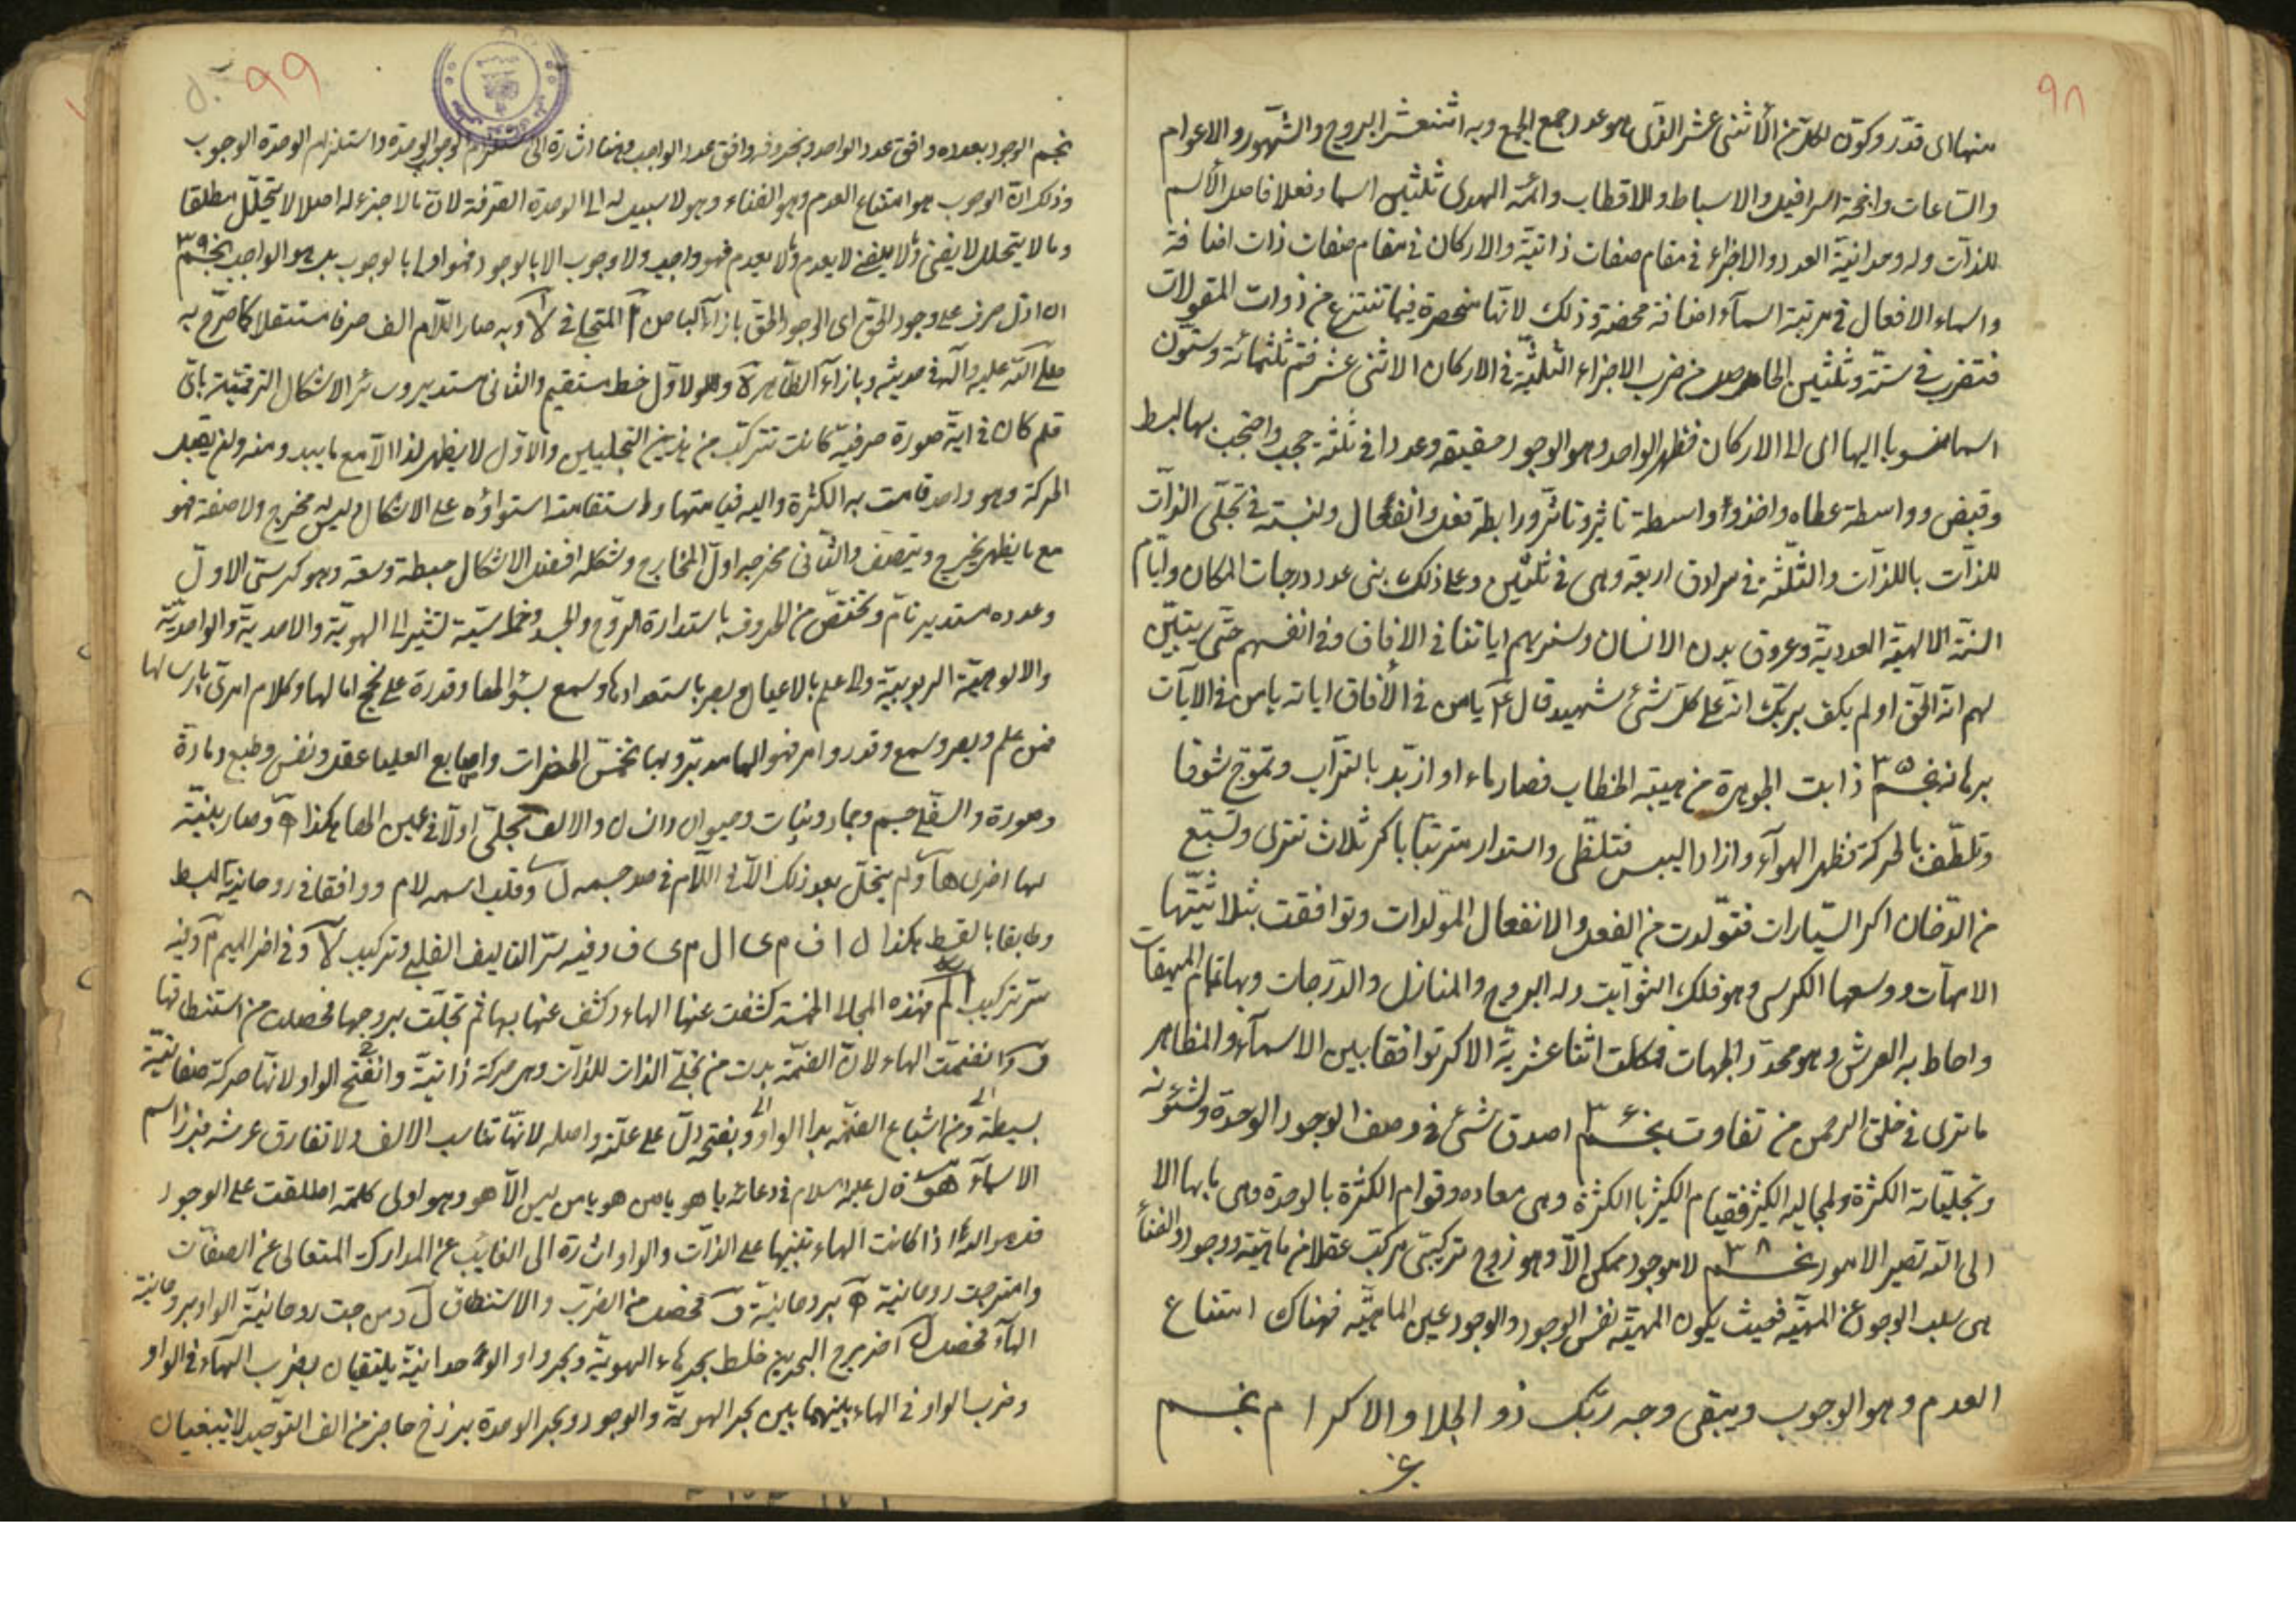 ٩٨
منها اى قدّر وكوّن لكلّ من الأثنى عشر الذى هو عدد جمع الجمع وبه اثنعشر البروج والشّهور والاعوام
والسّاعات واجنحة اسرافيل والاسباط والاقطاب وائمّة الهدى ثلثين اسما وفعلا فاصل الأسم
للذآت وله وحدانيّة العدد والاجزاء فى مقام صفات ذاتيّة والاركان فى مقام صفات ذات اضافة
واسماء الافعال فى مرتبة اسمآء اضافة محضة وذلك لانّها منحصرة فيما تنتزع من ذوات المقولات
فتضرب فى ستّة وثلثين الحاصل من ضرب الاجزاء الثلثيّة فى الاركان الاثنى عشر فتمّ ثلثمائة وستّون
اسما منسوبا اليها اى الى الاركان فظهر الواحد وهو الوجود حقيقة وعددا فى ثلثة حجب واحتجب بها لبسط
وقبض وواسطة عطاء واخذ واسطة تاثير وتاثّر ورابطة فعل وانفعال ونسبة فى تجلّى الذآت
للذآت بالذآت والثّلثة فى سرادق اربعة وهى فى ثلثين وعلى ذلك بنى عدد درجات المكان وايّام
السّنة الالهيّة العدديّة وعروق بدن الانسان وسنريهم اياتنا فى الافاق وفى انفسهم حتّى يتبيّن
لهم انّه الحقّ اولم يكف بربّك انّه على كلّ شئ شهيد قال ع يا من فى الأفاق اياته يا من فى الآيات
برهانه نجم ٣٥ ذابت الجوهرة من هيبة الخطاب فصار ماء او ازبّد بالتّرآب وتموّج شوقا
وتلطّف بالحركة فظهر الهوآء وازاد اليبس فتلظّى واستدار مترتبا باكر ثلاث تترى وتسبّع
من الدّخان اكر السّيّارات فتولّدت من الفعل والانفعال المولدات وتوافقت بثلاثيّتها
الامهآت ووسعها الكرسى وهو فلك الثوآبت وله البروج والمنازل والدّرجات وبها تمام الميقات
واحاط به العرش وهو محدّد الجهات فكملت اثنا عشريّة الاكر توافقا بين الاسمآء والمظاهر
ما ترى فى خلق الرحمن من تفاوت نجم ٣٤ اصدق شئ فى وصف الوجود الوحدة ولشئونه
وتجليّاته الكثرة ولمجاليه الكثير فقيام الكثير بالكثرة وهى معاده وقوام الكثرة بالوحدة وهى بابها الا
الى الله تصير الامور نجم ٣٨ لا موجود ممكن الّا وهو زوج تركيبىّ مركّب عقلا من ماهيّة ووجود والفنآء
هى سلب الوجود عن المهيّة فحيث يكون المهيّة نفس الوجود والوجود عين الماهيّة فهناك امتناع
العدم وهو الوجوب ويبقى وجه ربّك ذو الجلا والاكرام نجم
٩٩
نجم الوجود بعدده وافق عدد الواحد وبحروفه وافق عدد الواجب وهذا اشارة الى استلزام الوجود الوحدة واستلزام الوحدة الوجوب
وذلك انّ الوجوب هو امتناع العدم وهو الفناء وهو لا سبيل له الى الوحدة الصّرفة لانّ ما لا جزء له اصلا لا يتحلّل مطلقا
وما لا يتحلل لا يفنى وما لا يفنى لا يعدم وما لا يعدم فهو واجب ولا وجوب الا بالوجود فهو اولى بالوجوب بل هو الواجب نجم ٣٩
ان اوّل حرف على وجود الحقّ اى الوجود الحقّ بازاء الباص ا المتجلى فى لآ وبه صار اللّام الف حرفا مستقلا كما صرّح به
صلّى الله عليه وآله فى حديثه وبازاء الظّاهر ة وللاوّل خط مستقيم والثانى مستدير وسائر الاشكال الترقيميّة باىّ
قلم كان فى ايّة صورة حرفية كانت تتركّب من هذين التجليين والاوّل لا يظهر لذا الّا مع ما يبدو منه ولن يقبل
الحركة وهو واحد قامت به الكثرة واليه قيامتها واستقامته استواؤه على الاشكال وليس له مخرج ولا صفة فهو
مع ما يظهر يخرج ويتّصف والثّانى مخرجه اوّل المخارج وشكله افضل الاشكال حيطة وسعة وهو كرسىّ الاوّل
وعدده مستدير تامّ وتختصّ من الحروف باستدارة الرّوح والجسد وخماسيّة لتشير الى الهويّة والاحديّة والواحديّة
والالوهيّة الربوبيّة والى علم بالاعيان وبصر باستعداداتها وسمع بسؤالها وقدرة على نجح امالها وكلام امرىّ بارسالها
فمن علم وبصر وسمع وقدر وامر فهو الهها مدبّر وبها تخمّس الحضرات واصابع العليا عقل ونفس وطبع ومادة
وصورة والسّفلى جسم وجماد ونبات وحيوان وانسان والالف تجلّى اولا فى عين الها هكذا وصار ببنيّة
لها اخرى هآ ولم يتجلّ بعد ذلك الّا فى اللّام فى صدر جسمه ل وقلب اسمه لام ووافقا فى روحانيّة البسط
وطابقا بالقسط هكذا ل ا ف م ى ا ل م ى ف وفيه سرّ التاليف القلبى وتركيب لآ وفى اخر الميم م وفيه
سرّ تركيب الم فهذه المجالا الخمسة كشفت عنها الهاء وكشف عنها بها ثم تجلّت بروجها فحصلت من استنطاقها
و وانضمّت الهاء لانّ الضمّة بدت من تجلّى الذات للذآت وهى حركة ذاتيّة وانفتح الواو لانّها حركة صفاتيّة
بسيطة ومن اشباع الضمّة بدا الواو وبفتحه دلّ على علّته واصله لانّها تناسب الالف ولا تفارق عرشه فبرز اسم
الاسمآء هو قال عليه السلام فى دعائه يا هو يا من هو يا من ليس الّا هو وهو اولى كلمة اطلقت على الوجود
قدس والله اذا كانت الهاء تنبيها على الذآت والواو اشارة الى الغايب عن المدارك المتعالى عن الصفآت
وامتزجت روحانية ه بروحانيّة و فحصل من الضرب والاستنطاق ل ومن جت روحانيّة الواو بروحانية
الهآء فحصل ل اخر مرج البحرين خلط بحر هاء الهويّة وبحر واو الوحدانيّة يلتقيان بضرب الهآء فى الواو
وضرب الواو فى الهاء بينهما بين بحر الهويّة والوجود وبحر الوحدة برزخ حاجز من الف التوحيد لا يبغيان